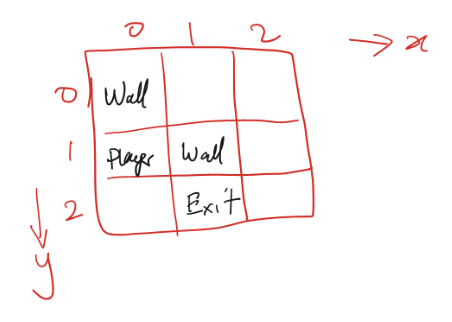 0 1 2 → x
0 Wall
1 Player Wall
2 Exit
y